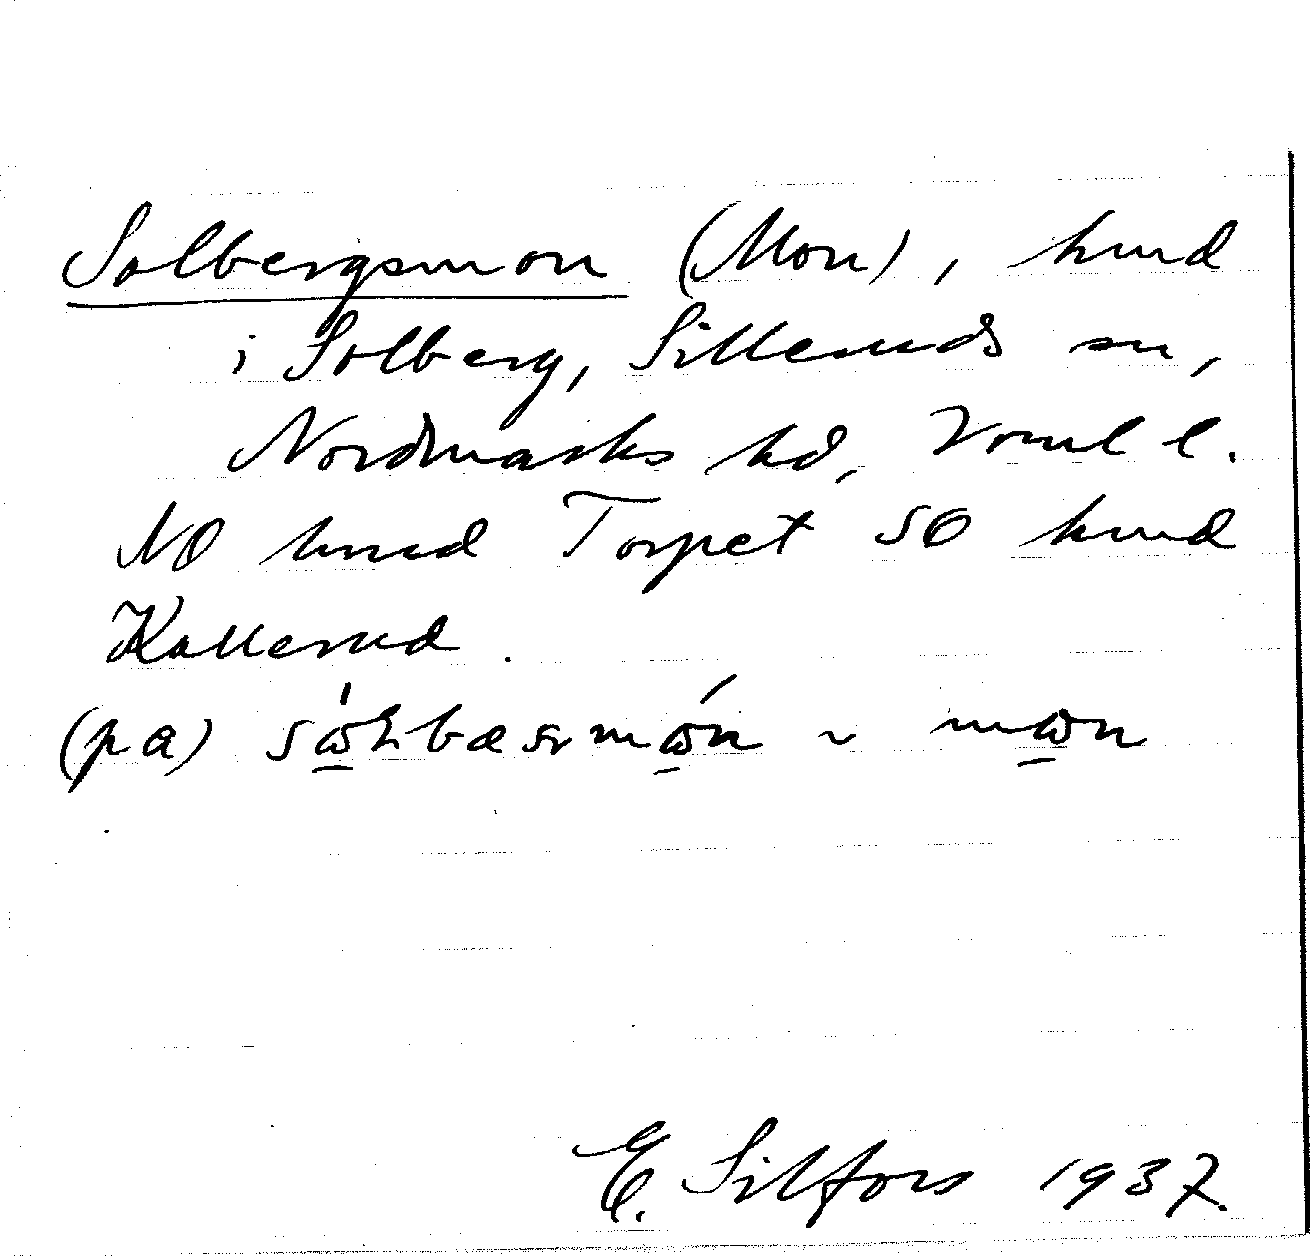 Solbergsmon (Mon), hmd
i Solberg, Silleruds sn,
Nordmarks hd, Vrml l.
NO hmd Torpet SO hmd
Kallerud.
(pa)
E. Silfors 1937.